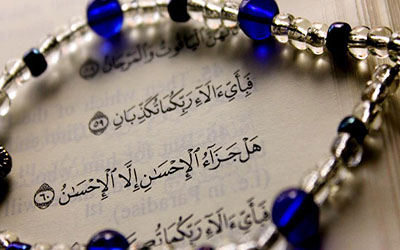 كَأَنَّهُنَّ ٱلْيَاقُوتُ وَٱلْمَرْجَانُ ۝٥٨
فَبِأَيِّ ءَالَآءِ رَبِّكُمَا تُكَذِّبَانِ ۝٥٩
هَلْ جَزَآءُ ٱلْإِحْسَٰنِ إِلَّا ٱلْإِحْسَٰنُ ۝٦٠
فَبِأَيِّ ءَالَآءِ رَبِّكُمَا